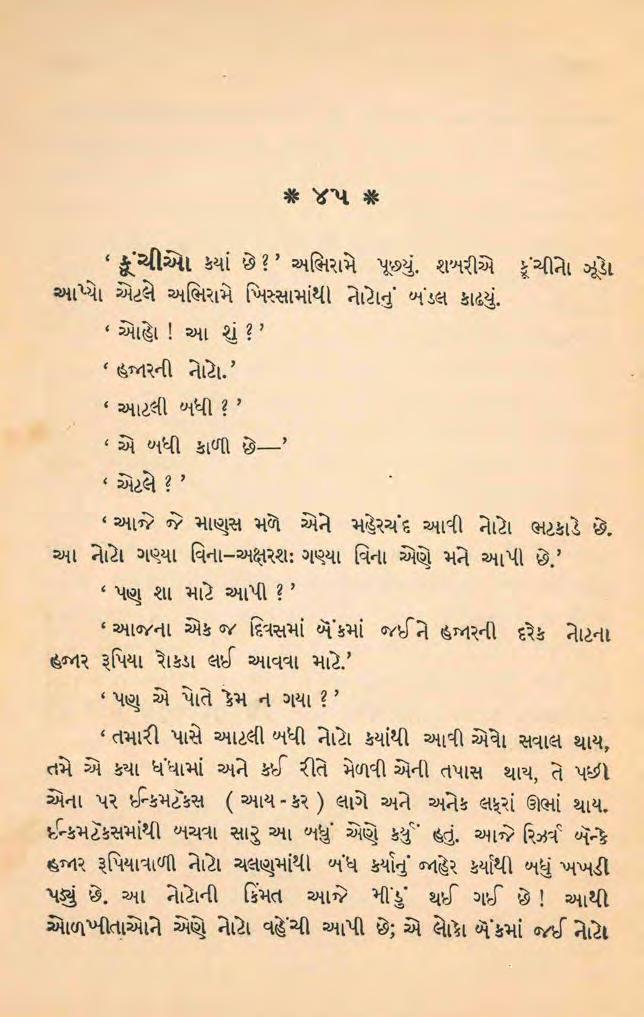 * ૪૫ *
‘ કૂંચીઓ ક્યાં છે ? ’ અભિરામે પૂછ્યું. શબરીએ કૂંચીનો ઝૂડો
આપ્યો એટલે અભિરામે ખિસ્સામાંથી નોટોનું બંડલ કાઢ્યું.
‘ ઓહો ! આ શું ? ’
‘ હજારની નોટો. ’
‘ આટલી બધી ? ’
‘ એ બધી કાળી છે— ’
‘ એટલે ? ’
‘ આજે જે માણસ મળે એને મહેરચંદ આવી નોટો ભટકાડે છે.
આ નોટો ગણ્યા વિના–અક્ષરશઃ ગણ્યા વિના એણે મને આપી છે. ’
‘ પણ શા માટે આપી ? ’
‘ આજના એક જ દિવસમાં બૅંકમાં જઈને હજારની દરેક નોટના
હજાર રૂપિયા રોકડા લઈ આવવા માટે. ’
‘ પણ એ પોતે કેમ ન ગયા ? ’
‘ તમારી પાસે આટલી બધી નોટો ક્યાંથી આવી એવો સવાલ થાય,
તમે એ કયા ધંધામાં અને કઈ રીતે મેળવી એની તપાસ થાય, તે પછી
એના પર ઈન્કમટૅક્સ ( આય - કર ) લાગે અને અનેક લફરાં ઊભાં થાય.
ઈન્કમટૅક્સમાંથી બચવા સારુ આ બધું એણે કર્યું હતું. આજે રિઝર્વ બૅન્કે
હજાર રૂપિયાવાળી નોટો ચલણમાંથી બંધ કર્યાનું જાહેર કર્યાથી બધું ખખડી
પડ્યું છે. આ નોટોની કિંમત આજે મીંડું થઈ ગઈ છે ! આથી
ઓળખીતાઓને એણે નોટો વહેંચી આપી છે; એ લોકો બૅંકમાં જઈ નોટો